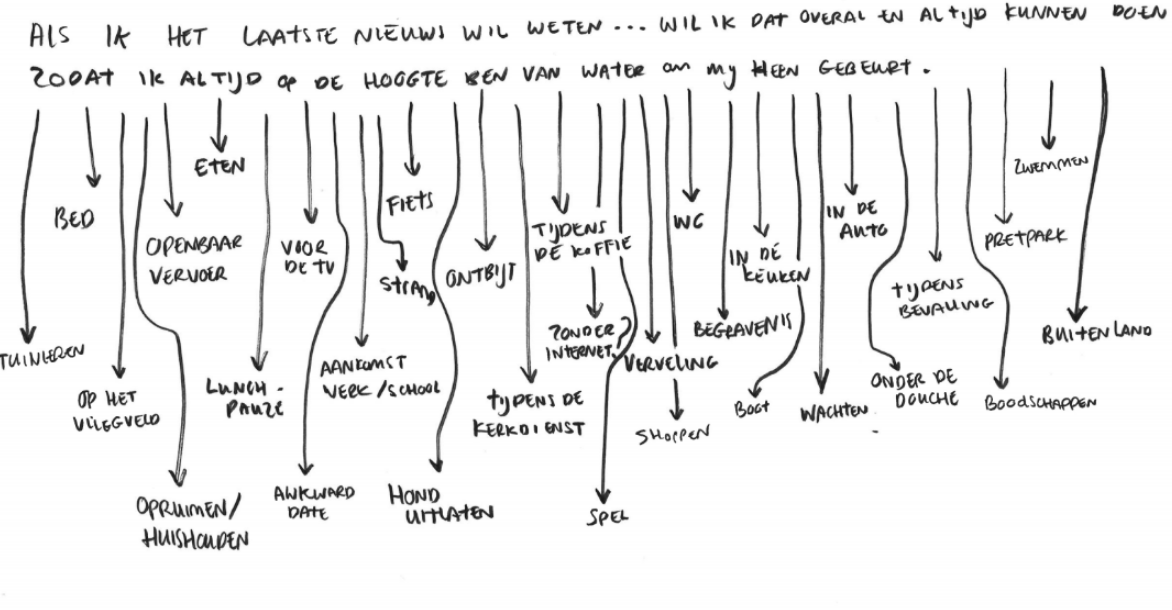 ALS IK HET LAATSTE NIEUWS WIL WETEN... WIL IK DAT OVERAL EN ALTIJD KUNNEN DOEN
ZODAT IK ALTIJD OP DE HOOGTE BEN VAN WATER OM MY HEEN GEBEURT.
ETEN
ZWEMMEN
BED
FIETS
WC
IN DE
AUTO
OPENBAAR
VERVOER
VOOR
DE TV
TIJDENS
DE KOFFIE
PRETPARK
STRAND
ONTBIJT
IN DE
KEUKEN
TIJDENS
BEVALLING
ZONDER
INTERNET?
BEGRAVENIS
BUITENLAND
TUINIEREN
AANKOMST
WERK/SCHOOL
VERVELING
OP HET
VLIEGVELD
LUNCH-
PAUZE
TIJDENS DE
KERKDIENST
SHOPPEN
BOOT
WACHTEN
ONDER DE
DOUCHE
BOODSCHAPPEN
OPRUIMEN/
HUISHOUDEN
AWKWARD
DATE
HOND
UITLATEN
SPEL